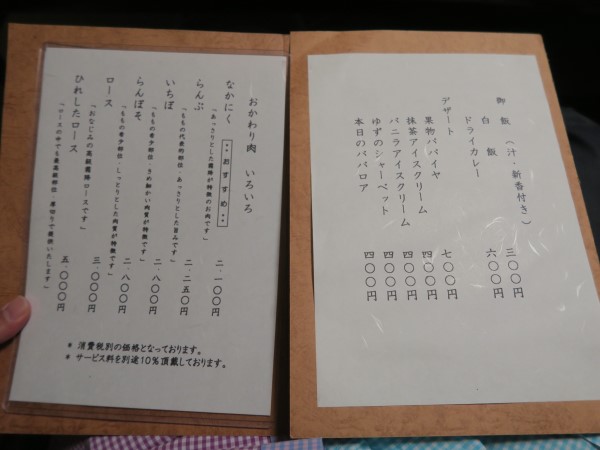 御飯（汁・新香付き）
白飯 三〇〇円
ドライカレー 六〇〇円
デザート
果物パパイヤ 七〇〇円
抹茶アイスクリーム 四〇〇円
バニラアイスクリーム 四〇〇円
ゆずのシャーベット 四〇〇円
本日のババロア 四〇〇円
おかわり肉 いろいろ
なかにく おすすめ 二、一〇〇円
「あっさりとした霜降が特徴のお肉です」
らんぷ 二、二五〇円
「ももの代表的部位・あっさりとした旨みです」
いちぼ 二、八〇〇円
「ももの希少部位・きめ細かい肉質が特徴です」
らんぼそ 二、八〇〇円
「ももの希少部位・しっとりとした肉質が特徴です」
ロース 三、〇〇〇円
「おなじみの高級霜降ロースです」
ひれしたロース 五、〇〇〇円
「ロースの中でも最高級部位・厚切りで提供いたします」
* 消費税別の価格となっております。
* サービス料を別途10%頂戴しております。